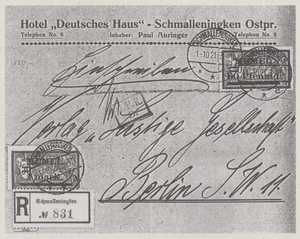 Hotel „Deutsches Haus" - Schmalleningken Ostpr.
Telephon No. 8 Inhaber: Paul Auringer Telephon No. 8
SCHMALLENINGKEN
1-10.21
MEMEL
60 Pfennig
Einschreiben
Verlag „Lustige Gesellschaft"
Berlin S.W. 11.
R
Schmalleningken
№ 831